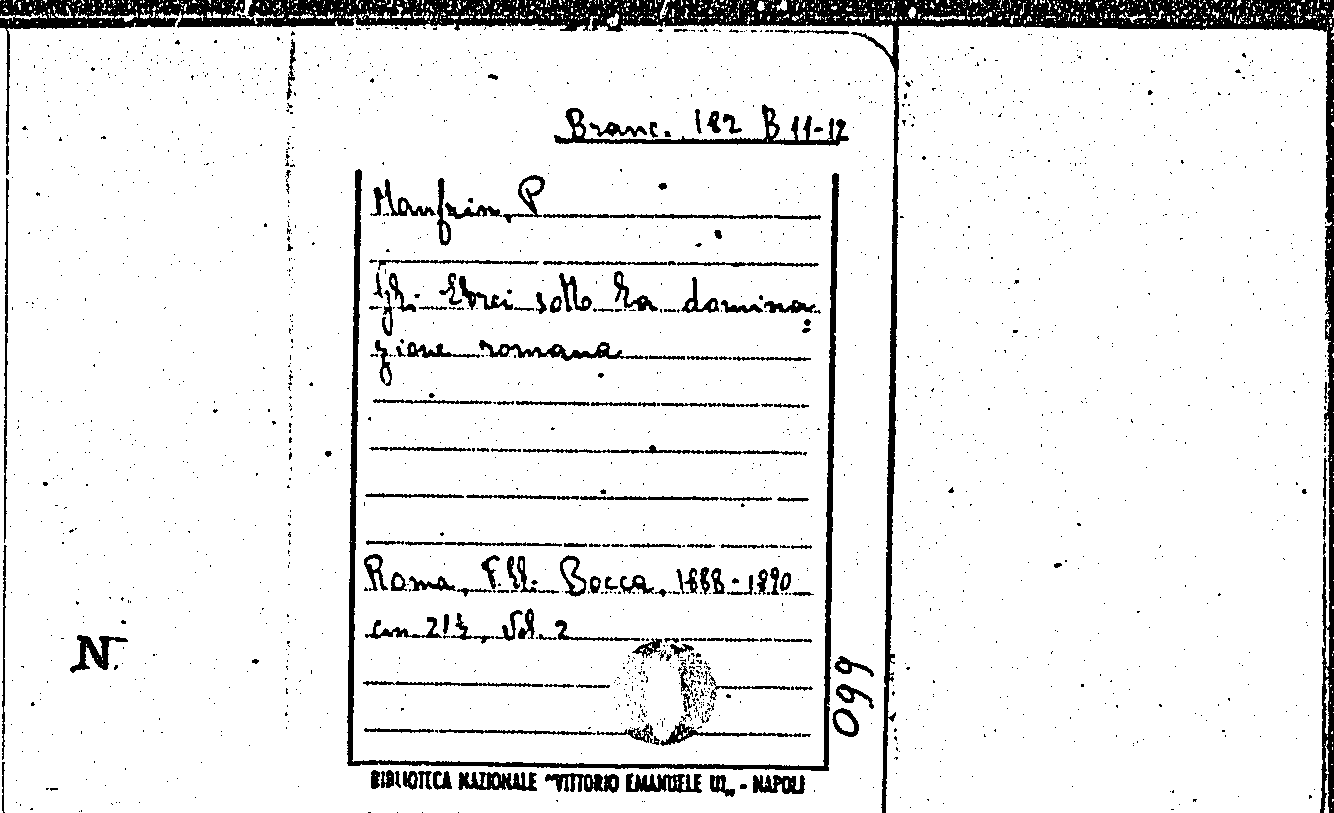 Branc. 182 B 11-12
Manfrin, P
Gli Ebrei sotto la domina:
zione romana
Roma, F.lli Bocca, 1888-1890
cm. 21½, Vol. 2
N.
099
BIBLIOTECA NAZIONALE "VITTORIO EMANUELE III„ - NAPOLI